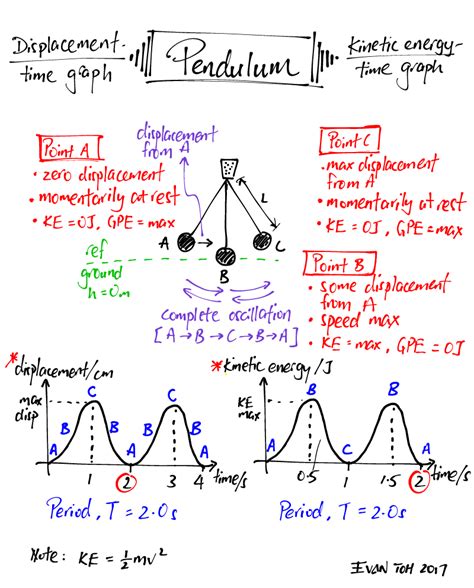 Displacement-
time graph
Pendulum
Kinetic energy-
time graph
displacement
from A
Point A
• zero displacement
• momentarily at rest
• KE = 0J, GPE = max
Point C
• max displacement
from A
• momentarily at rest
• KE = 0J, GPE = max
L
A
B
C
ref
ground
h = 0m
Point B
• some displacement
from A
• speed max
• KE = max, GPE = 0J
complete oscillation
[A→B→C→B→A]
*displacement/cm
max
disp
A B C B A B C B A
1 2 3 4 time/s
Period, T = 2.0s
*kinetic energy/J
KE
max
A B C B A
0.5 1 1.5 2 time/s
Period, T = 2.0s
Note: KE = ½mv²
EVAN TOH 2017